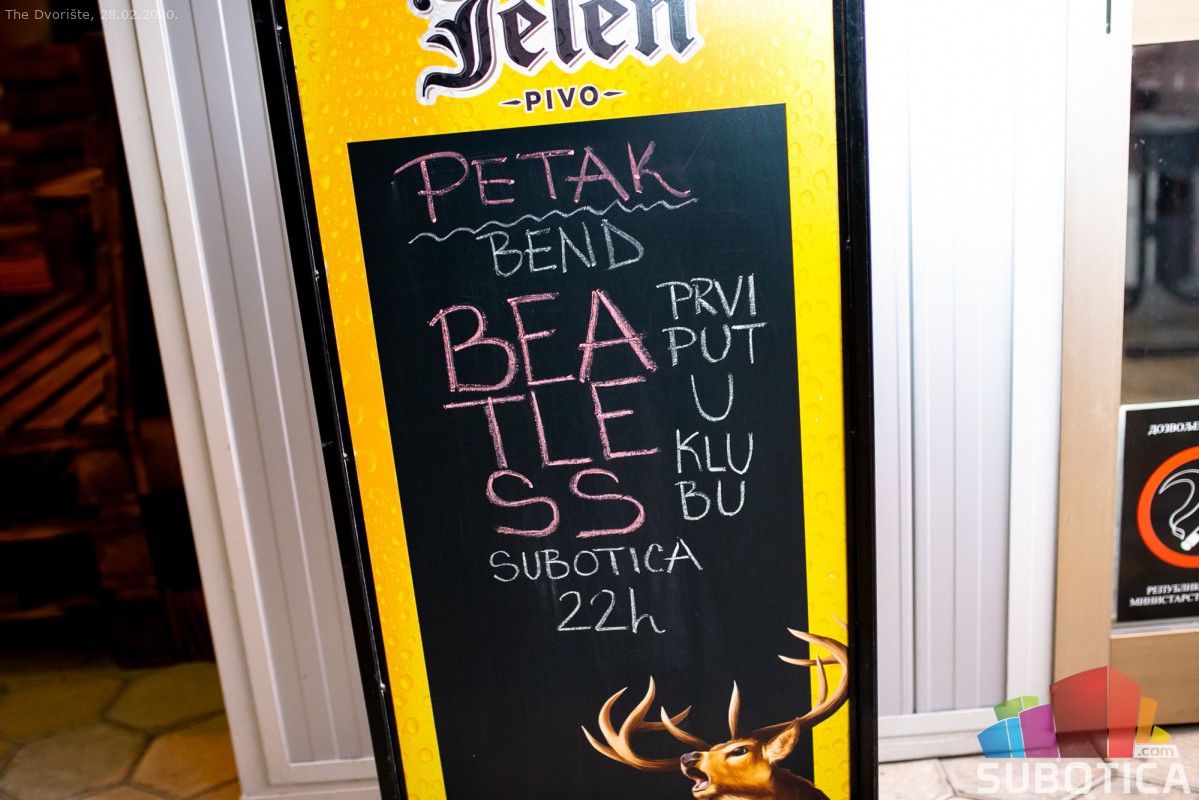 The Dvorište, 28.02.2020.
Jelen
PIVO
PETAK
BEND
BEA
TLE
SS
PRVI
PUT
U
KLU
BU
SUBOTICA
22h
ДОЗВОЉЕ
РЕПУБЛИК
МИНИСТАРСТ
.com
SUBOTICA